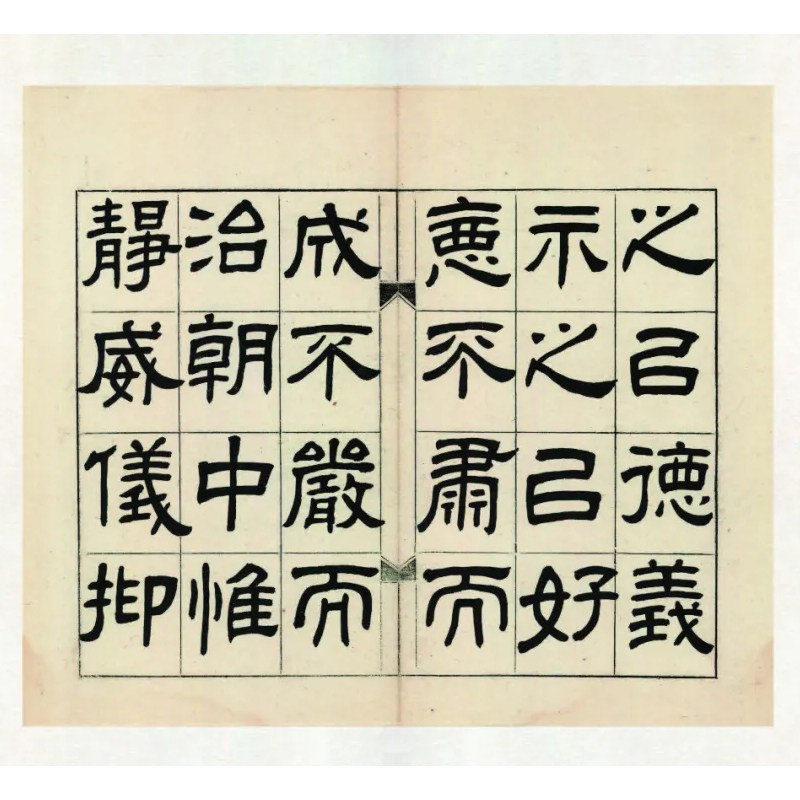 之㠯德義
示之㠯好
惡不肅而
成不嚴而
治朝中惟
靜威儀抑